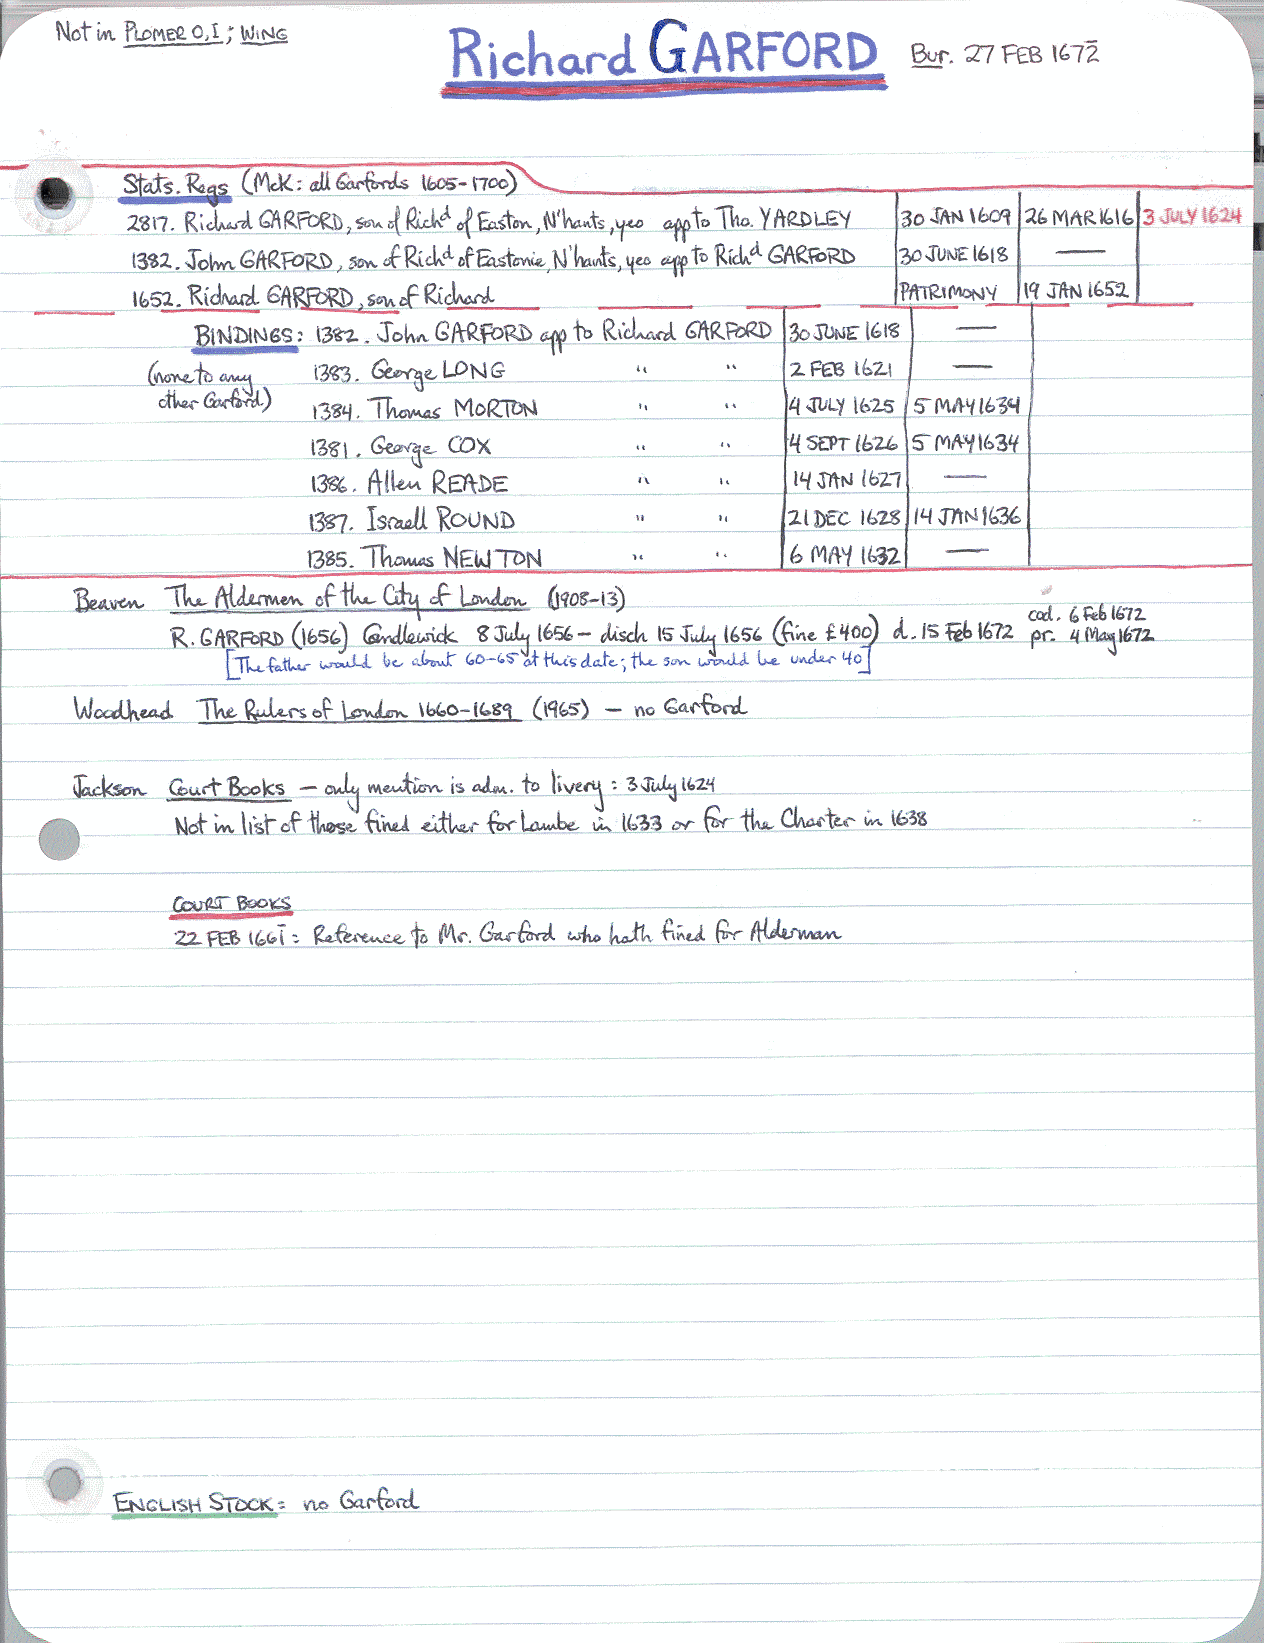 Not in PLOMER 0,I; WING
Richard GARFORD
Bur. 27 FEB 1672̄
Stats. Regs (McK: all Garfords 1605-1700)
2817. Richard GARFORD, son of Richd of Easton, N'hants, yeo app to Tho. YARDLEY 30 JAN 1609 26 MAR 1616 3 JULY 1624
1382. John GARFORD, son of Richd of Eastonie, N'hants, yeo app to Richd GARFORD 30 JUNE 1618 —
1652. Richard GARFORD, son of Richard PATRIMONY 19 JAN 1652
BINDINGS: 1382. John GARFORD app to Richard GARFORD 30 JUNE 1618 —
(none to any other Garford) 1383. George LONG " " 2 FEB 1621 —
1384. Thomas MORTON " " 4 JULY 1625 5 MAY 1634
1381. George COX " " 4 SEPT 1626 5 MAY 1634
1386. Allen READE " " 14 JAN 1627 —
1387. Israell ROUND " " 21 DEC 1628 14 JAN 1636
1385. Thomas NEWTON " " 6 MAY 1632 —
Beaven The Aldermen of the City of London (1908-13)
R. GARFORD (1656) Candlewick 8 July 1656 – disch 15 July 1656 (fine £400) d. 15 Feb 1672 cod. 6 Feb 1672
pr. 4 May 1672
[The father would be about 60-65 at this date; the son would be under 40]
Woodhead The Rulers of London 1660-1689 (1965) – no Garford
Jackson Court Books – only mention is adm. to livery: 3 July 1624
Not in list of those fined either for Lambe in 1633 or for the Charter in 1638
COURT BOOKS
22 FEB 1661̄: Reference to Mr. Garford who hath fined for Alderman
ENGLISH STOCK: no Garford